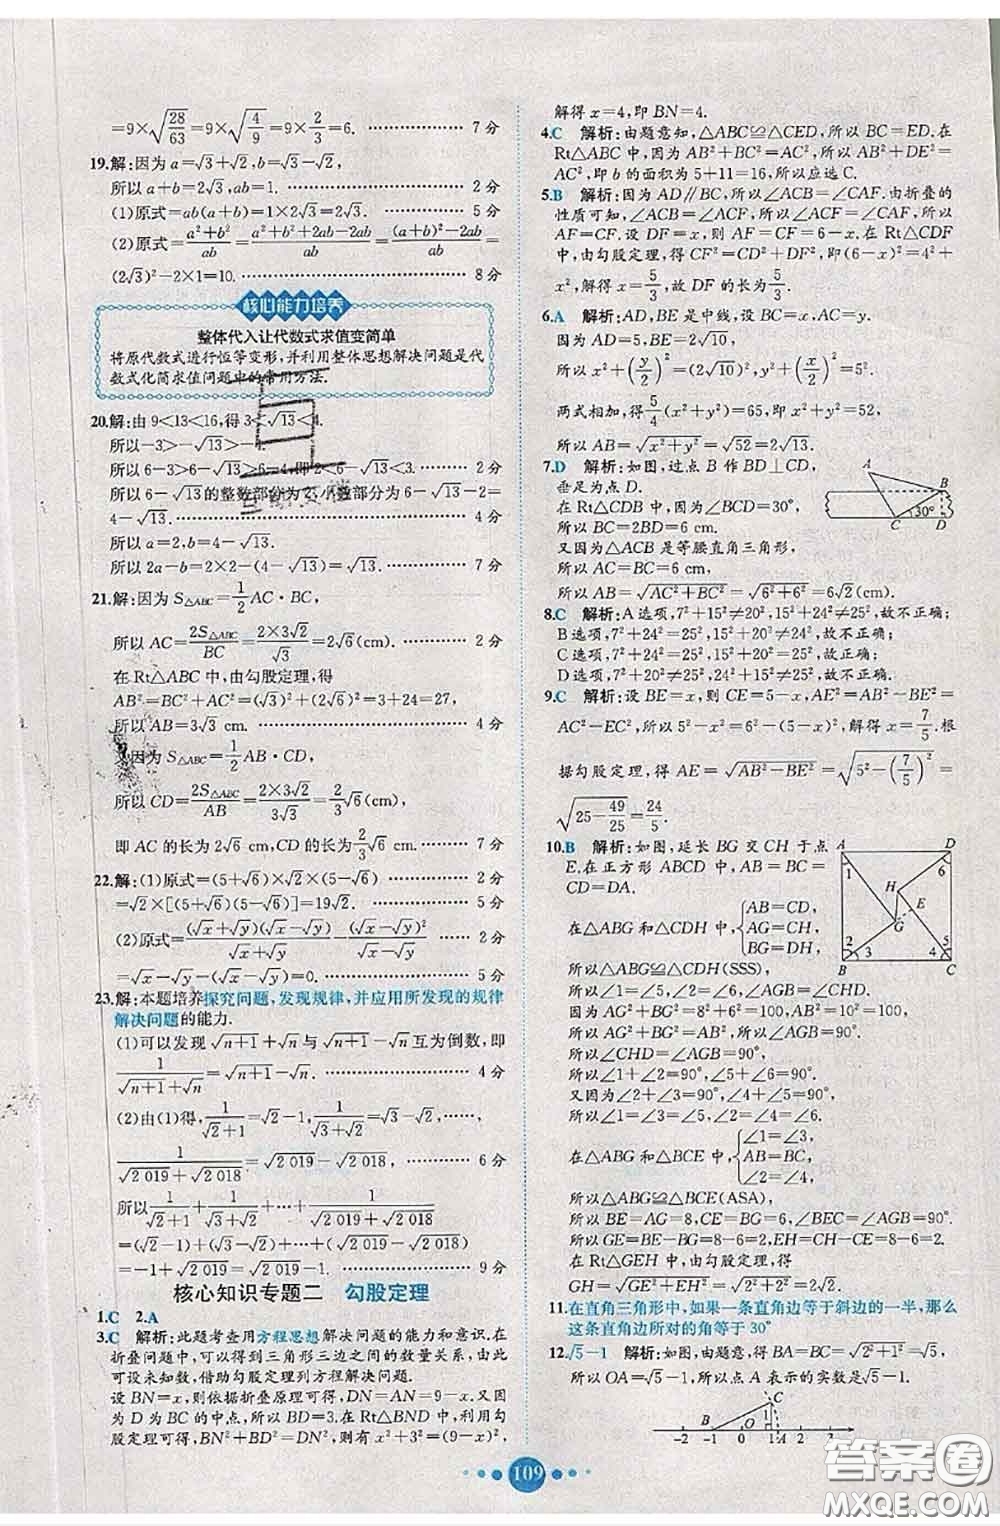 =9×√(28/63)=9×√(4/9)=9×2/3=6. ……………… 7分
19.解:因为a=√3+√2,b=√3-√2,
所以a+b=2√3,ab=1. ……………… 2分
(1)原式=ab(a+b)=1×2√3=2√3. ……………… 5分
(2)原式=(a²+b²)/ab=(a²+b²+2ab-2ab)/ab=((a+b)²-2ab)/ab=
(2√3)²-2×1=10. ……………… 8分
核心能力培养
整体代入让代数式求值变简单
将原代数式进行恒等变形,并利用整体思想解决问题是代
数式化简求值问题中的常用方法.
20.解:由9<13<16,得3<√13<4.
所以-3>-√13>-4.
所以6-3>6-√13>6-4,即2<6-√13<3. ……… 2分
所以6-√13的整数部分为2,小数部分为6-√13-2=
4-√13. ……………… 4分
所以a=2,b=4-√13.
所以2a-b=2×2-(4-√13)=√13. ……… 7分
21.解:因为S△ABC=1/2AC·BC,
所以AC=2S△ABC/BC=(2×3√2)/√3=2√6(cm). ……… 2分
在Rt△ABC中,由勾股定理,得
AB²=BC²+AC²=(√3)²+(2√6)²=3+24=27,
所以AB=3√3 cm. ……………… 4分
因为S△ABC=1/2AB·CD,
所以CD=2S△ABC/AB=(2×3√2)/(3√3)=2/3√6(cm),
即AC的长为2√6 cm,CD的长为2/3√6 cm. ……… 7分
22.解:(1)原式=(5+√6)×√2(5-√6) ……… 2分
=√2×[(5+√6)(5-√6)]=19√2. ……… 5分
(2)原式=(√x+√y)(√x-√y)/(√x+√y)-(√x-√y)²/(√x-√y) ……… 2分
=√x-√y-(√x-√y)=0. ……… 5分
23.解:本题培养探究问题,发现规律,并应用所发现的规律
解决问题的能力.
(1)可以发现√(n+1)+√n与√(n+1)-√n互为倒数,即
1/(√(n+1)+√n)=√(n+1)-√n. ……………… 4分
(2)由(1)得,1/(√2+1)=√2-1,1/(√3+√2)=√3-√2,……,
1/(√2 019+√2 018)=√2 019-√2 018, ……… 6分
所以1/(√2+1)+1/(√3+√2)+…+1/(√2 019+√2 018)
=(√2-1)+(√3-√2)+…+(√2 019-√2 018)
=-1+√2 019=√2 019-1. ……… 9分
核心知识专题二 勾股定理
1.C 2.A
3.C 解析:此题考查用方程思想解决问题的能力和意识.在
折叠问题中,可以得到三角形三边之间的数量关系,由此
可设未知数,借助勾股定理列方程解决问题.
设BN=x,则依据折叠原理可得,DN=AN=9-x.又因
为D为BC的中点,所以BD=3.在Rt△BND中,利用勾
股定理可得,BN²+BD²=DN²,则有x²+3²=(9-x)²,
解得x=4,即BN=4.
4.C 解析:由题意知,△ABC≌△CED,所以BC=ED.在
Rt△ABC中,因为AB²+BC²=AC²,所以AB²+DE²=
AC²,即b的面积为5+11=16,所以应选C.
5.B 解析:因为AD∥BC,所以∠ACB=∠CAF.由折叠的
性质可知,∠ACB=∠ACF,所以∠ACF=∠CAF,所以
AF=CF.设DF=x,则AF=CF=6-x.在Rt△CDF
中,由勾股定理,得CF²=CD²+DF²,即(6-x)²=4²+
x²,解得x=5/3,故DF的长为5/3.
6.A 解析:AD,BE是中线,设BC=x,AC=y.
因为AD=5,BE=2√10,
所以x²+(y/2)²=(2√10)²,y²+(x/2)²=5².
两式相加,得5/4(x²+y²)=65,即x²+y²=52.
所以AB=√(x²+y²)=√52=2√13.
7.D 解析:如图,过点B作BD⊥CD,
垂足为点D.
在Rt△CDB中,因为∠BCD=30°,
所以BC=2BD=6 cm.
又因为△ACB是等腰直角三角形,
所以AC=BC=6 cm.
所以AB=√(AC²+BC²)=√(6²+6²)=6√2(cm).
A
B
C
D
30°
8.C 解析:A选项,7²+15²≠20²,15²+24²≠25²,故不正确;
B选项,7²+24²=25²,15²+20²≠24²,故不正确;
C选项,7²+24²=25²,15²+20²=25²,故正确;
D选项,7²+20²≠25²,24²+15²≠25²,故不正确.
9.C 解析:设BE=x,则CE=5-x,AE²=AB²-BE²=
AC²-EC²,所以5²-x²=6²-(5-x)²,解得x=7/5.根
据勾股定理,得AE=√(AB²-BE²)=√(5²-(7/5)²)=
√(25-49/25)=24/5.
10.B 解析:如图,延长BG交CH于点
E,在正方形ABCD中,AB=BC=
CD=DA.
在△ABG和△CDH中,{AB=CD,
AG=CH,
BG=DH,
所以△ABG≌△CDH(SSS),
所以∠1=∠5,∠2=∠6,∠AGB=∠CHD.
因为AG²+BG²=8²+6²=100,AB²=10²=100,
所以AG²+BG²=AB²,所以∠AGB=90°.
所以∠CHD=∠AGB=90°.
所以∠1+∠2=90°,∠5+∠6=90°.
又因为∠2+∠3=90°,∠4+∠5=90°,
所以∠1=∠3=∠5,∠2=∠4=∠6.
在△ABG和△BCE中,{∠1=∠3,
AB=BC,
∠2=∠4,
所以△ABG≌△BCE(ASA).
所以BE=AG=8,CE=BG=6,∠BEC=∠AGB=90°.
所以GE=BE-BG=8-6=2,EH=CH-CE=8-6=2.
在Rt△GEH中,由勾股定理,得
GH=√(GE²+EH²)=√(2²+2²)=2√2.
A
D
1
6
H
E
G
2
3
4
5
B
C
11.在直角三角形中,如果一条直角边等于斜边的一半,那么
这条直角边所对的角等于30°
12.√5-1 解析:如图,由题意,得BA=BC=√(2²+1²)=√5,
所以OA=√5-1,所以点A表示的实数是√5-1.
C
B
O
1
A
-2 -1 0 1 2 3 4
109
答案圈
MXQE.COM